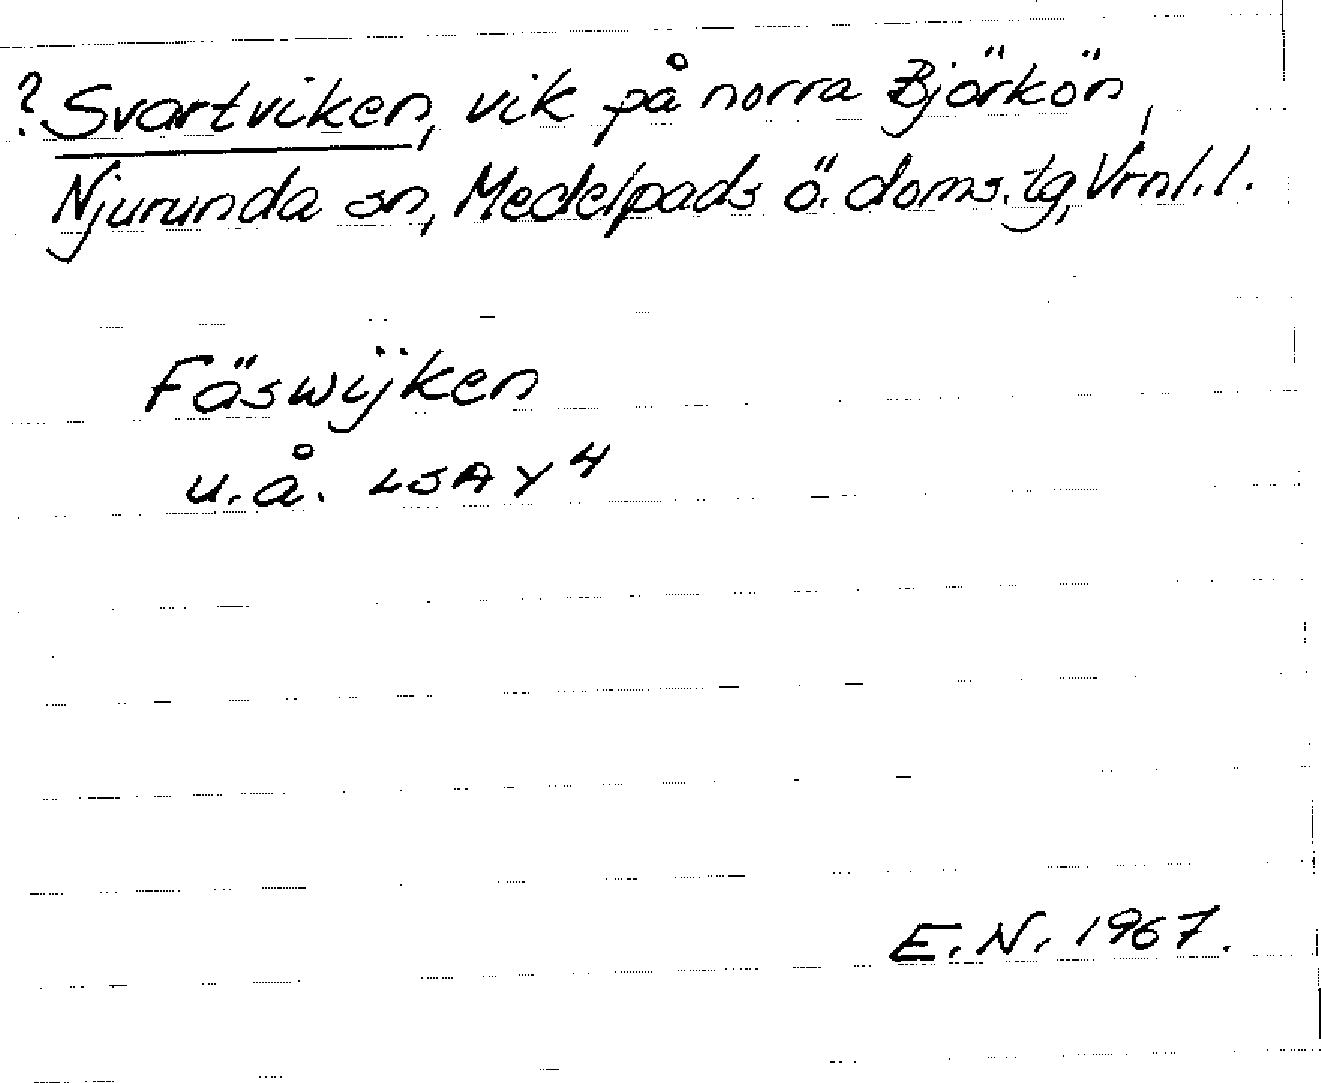 ? Svartviken, vik på norra Björkön,
Njurunda sn, Medelpads ö. doms. tg, Vrnl. l.
Fäswijken
u.å. LSA Y 4
E. N. 1967.